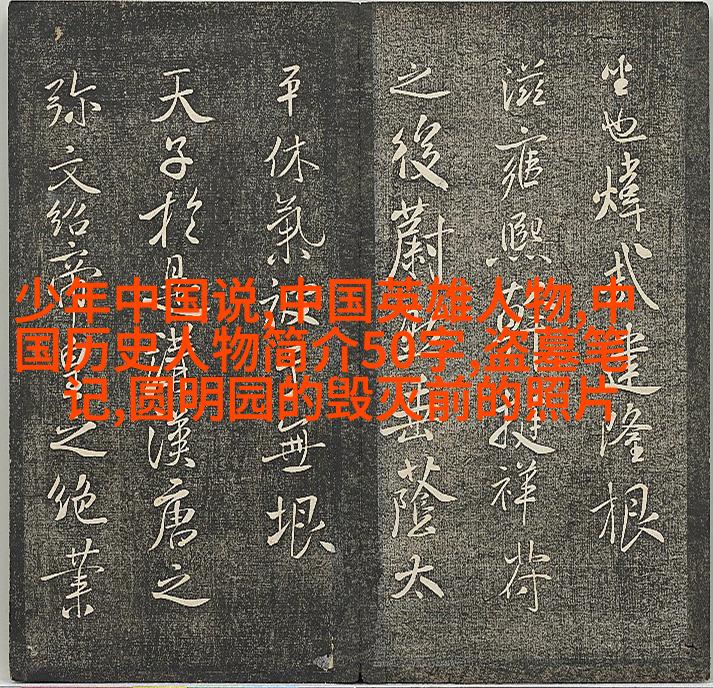 少年中国说,中国英雄人物,中
国历史人物简介50字,盗墓笔
记,圆明园的毁灭前的照片
也煒弌建隆根
滋雍熙挺祥符
之後蔚蔭太
平休氣無垠
天子於是講漢唐之
弥文紹帝之絶業